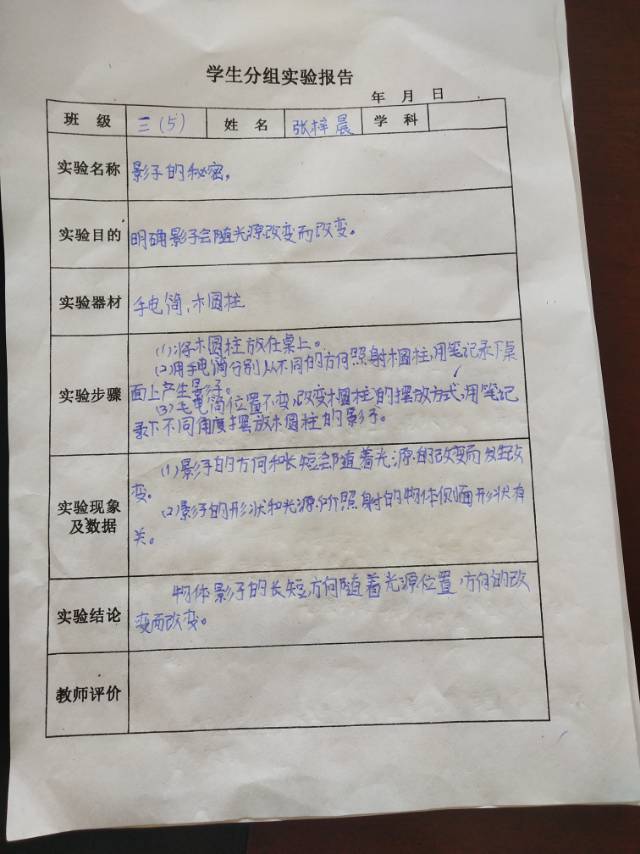 学生分组实验报告
年 月 日
班 级 三(5) 姓 名 张梓晨 学 科
实验名称 影子的秘密。
实验目的 明确影子会随光源改变而改变。
实验器材 手电筒、木圆柱
(1)将木圆柱放在桌上。
(2)用手电筒分别从不同的方向照射木圆柱,用笔记录下桌
实验步骤 面上产生影子。
(3)手电筒位置不变,改变木圆柱的摆放方式,用笔记
录下不同角度摆放木圆柱的影子。
(1)影子的方向和长短会随着光源的改变而发生改
变。
实验现象
及数据
(2)影子的形状和光源所照射的物体侧面形状有
关。
物体影子的长短,方向随着光源位置,方向的改
实验结论 变而改变。
教师评价